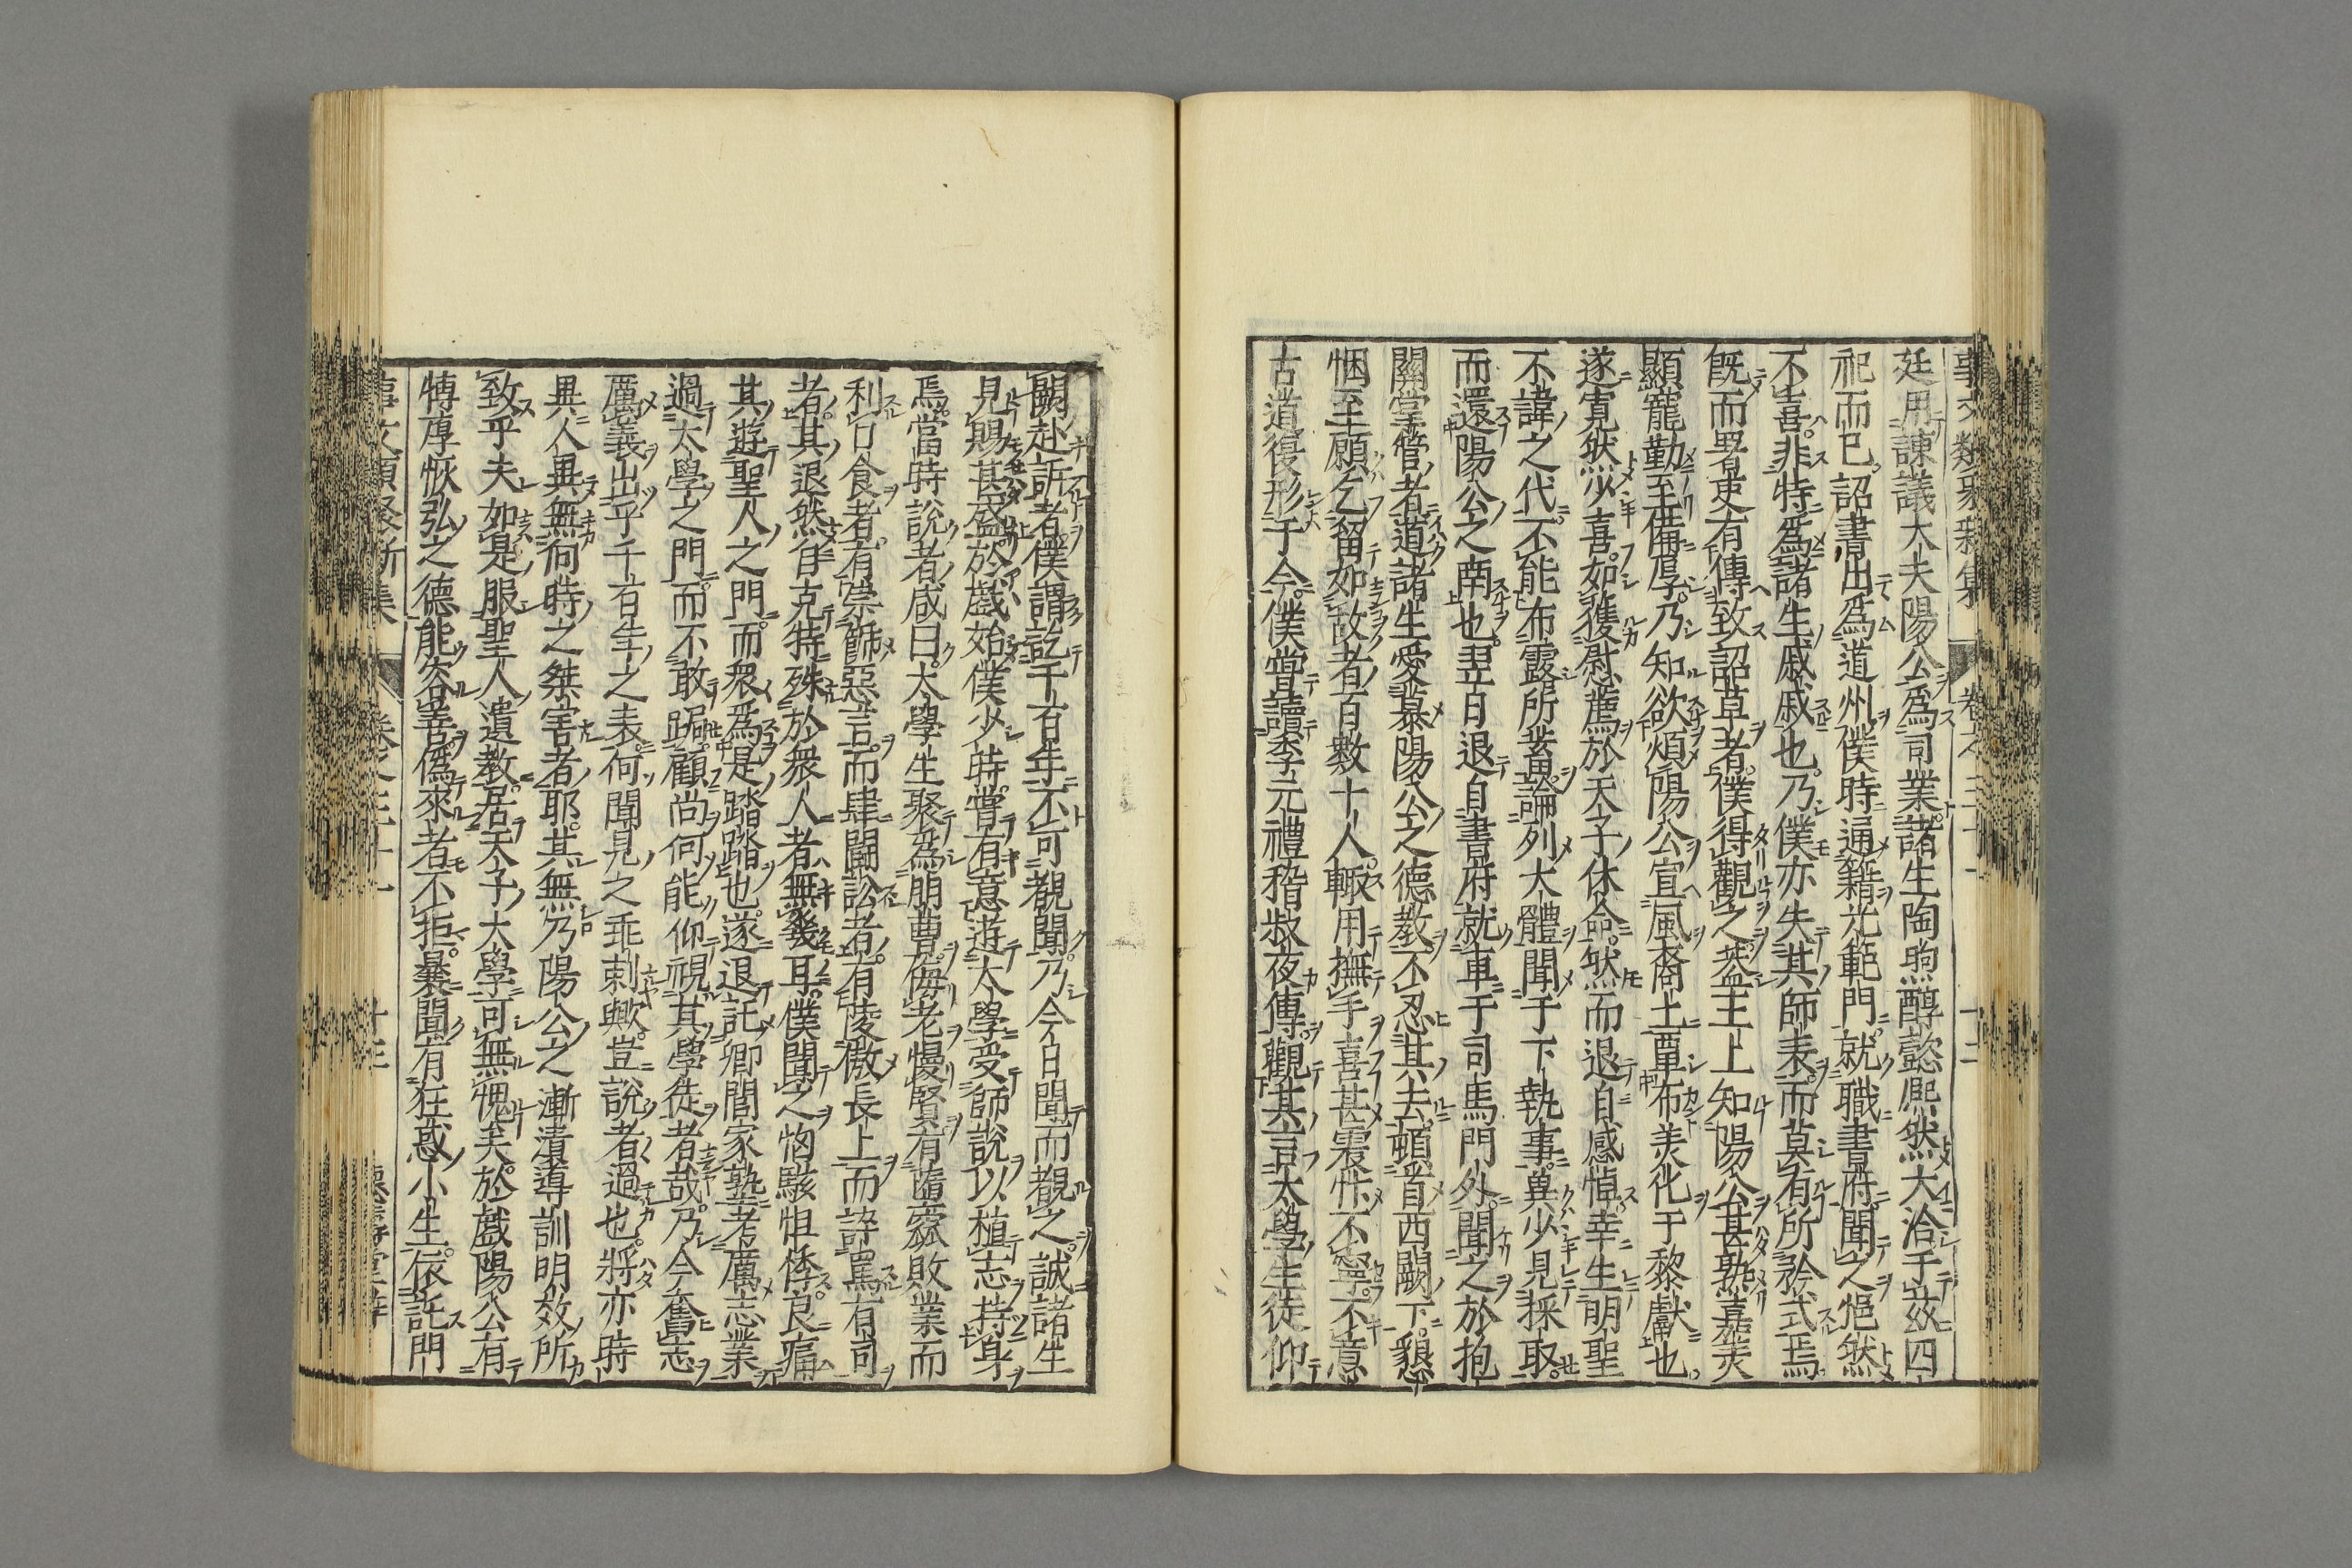 事文類聚新集 卷之三十一 十二
廷用諫議大夫陽公爲司業諸生陶煦醇懿熈然大洽于兹四
祀而已詔書出爲道州僕時通籍光範門就職書府聞之悒然
不喜非特爲諸生戚戚也乃僕亦失其師表而莫有所矜式焉
旣而署吏有傳致詔草者僕得觀之蓋主上知陽公甚熟嘉美
顯寵勤至備厚乃知欲煩陽公宣風裔土覃布美化于黎獻也
遂寬然少喜如獲慰薦於天子休命然而退自感悼幸生明聖
不諱之代不能布露所蓄論列大體聞于下執事冀少見採取
而還陽公之南也翌日退自書府就車于司馬門外聞之於抱
關掌管者道諸生愛慕陽公之德教不忍其去頓首西闕下懇
悃至願乞留如故者百數十人輒用撫手喜甚震忭不寧不意
古道復形于今僕嘗讀李元禮嵇叔夜傳觀其言太學生徒仰
闕赴訴者僕謂訖千百年不可覩聞乃今日聞而覩之誠諸生
見賜甚盛於戲始僕少時嘗有意遊太學受師說以植志持身
焉當時說者咸曰太學生聚爲朋曹侮老慢賢有墮窳敗業而
利口食者有崇飾惡言而肆鬪訟者有陵傲長上而誶罵有司
者其退然自克特殊於衆人者無幾耳僕聞之恟駭怛悸良痛
其遊聖人之門而衆爲是踏踏也遂退託鄉閭家塾考厲志業
過太學之門而不敢跼顧尚何能仰視其學徒者哉乃今奮志
厲義出乎千百年之表何聞見之乖剌歟豈說者過也將亦時
異人異無嚮時之桀害者耶其無乃陽公之漸漬導訓明效所
致乎夫如是服聖人遺教居天子大學可無愧矣於戲陽公有
博厚恢弘之德能容善僞來者不拒曩聞有狂惑小生依託門
事文類聚新集 卷之三十一 十三